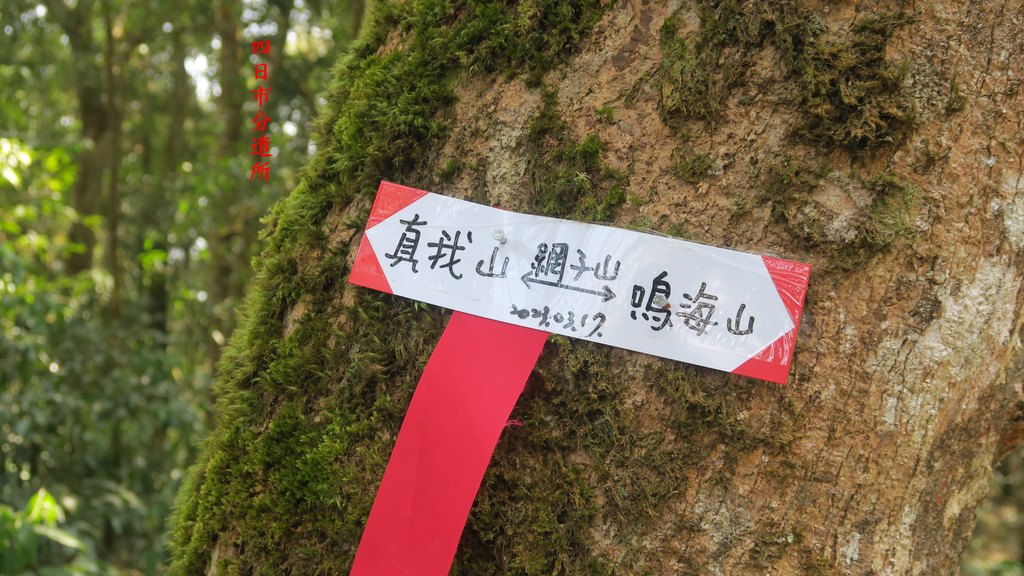 四日市分道所
真我山 網子山 鳴海山
2021.03.17.